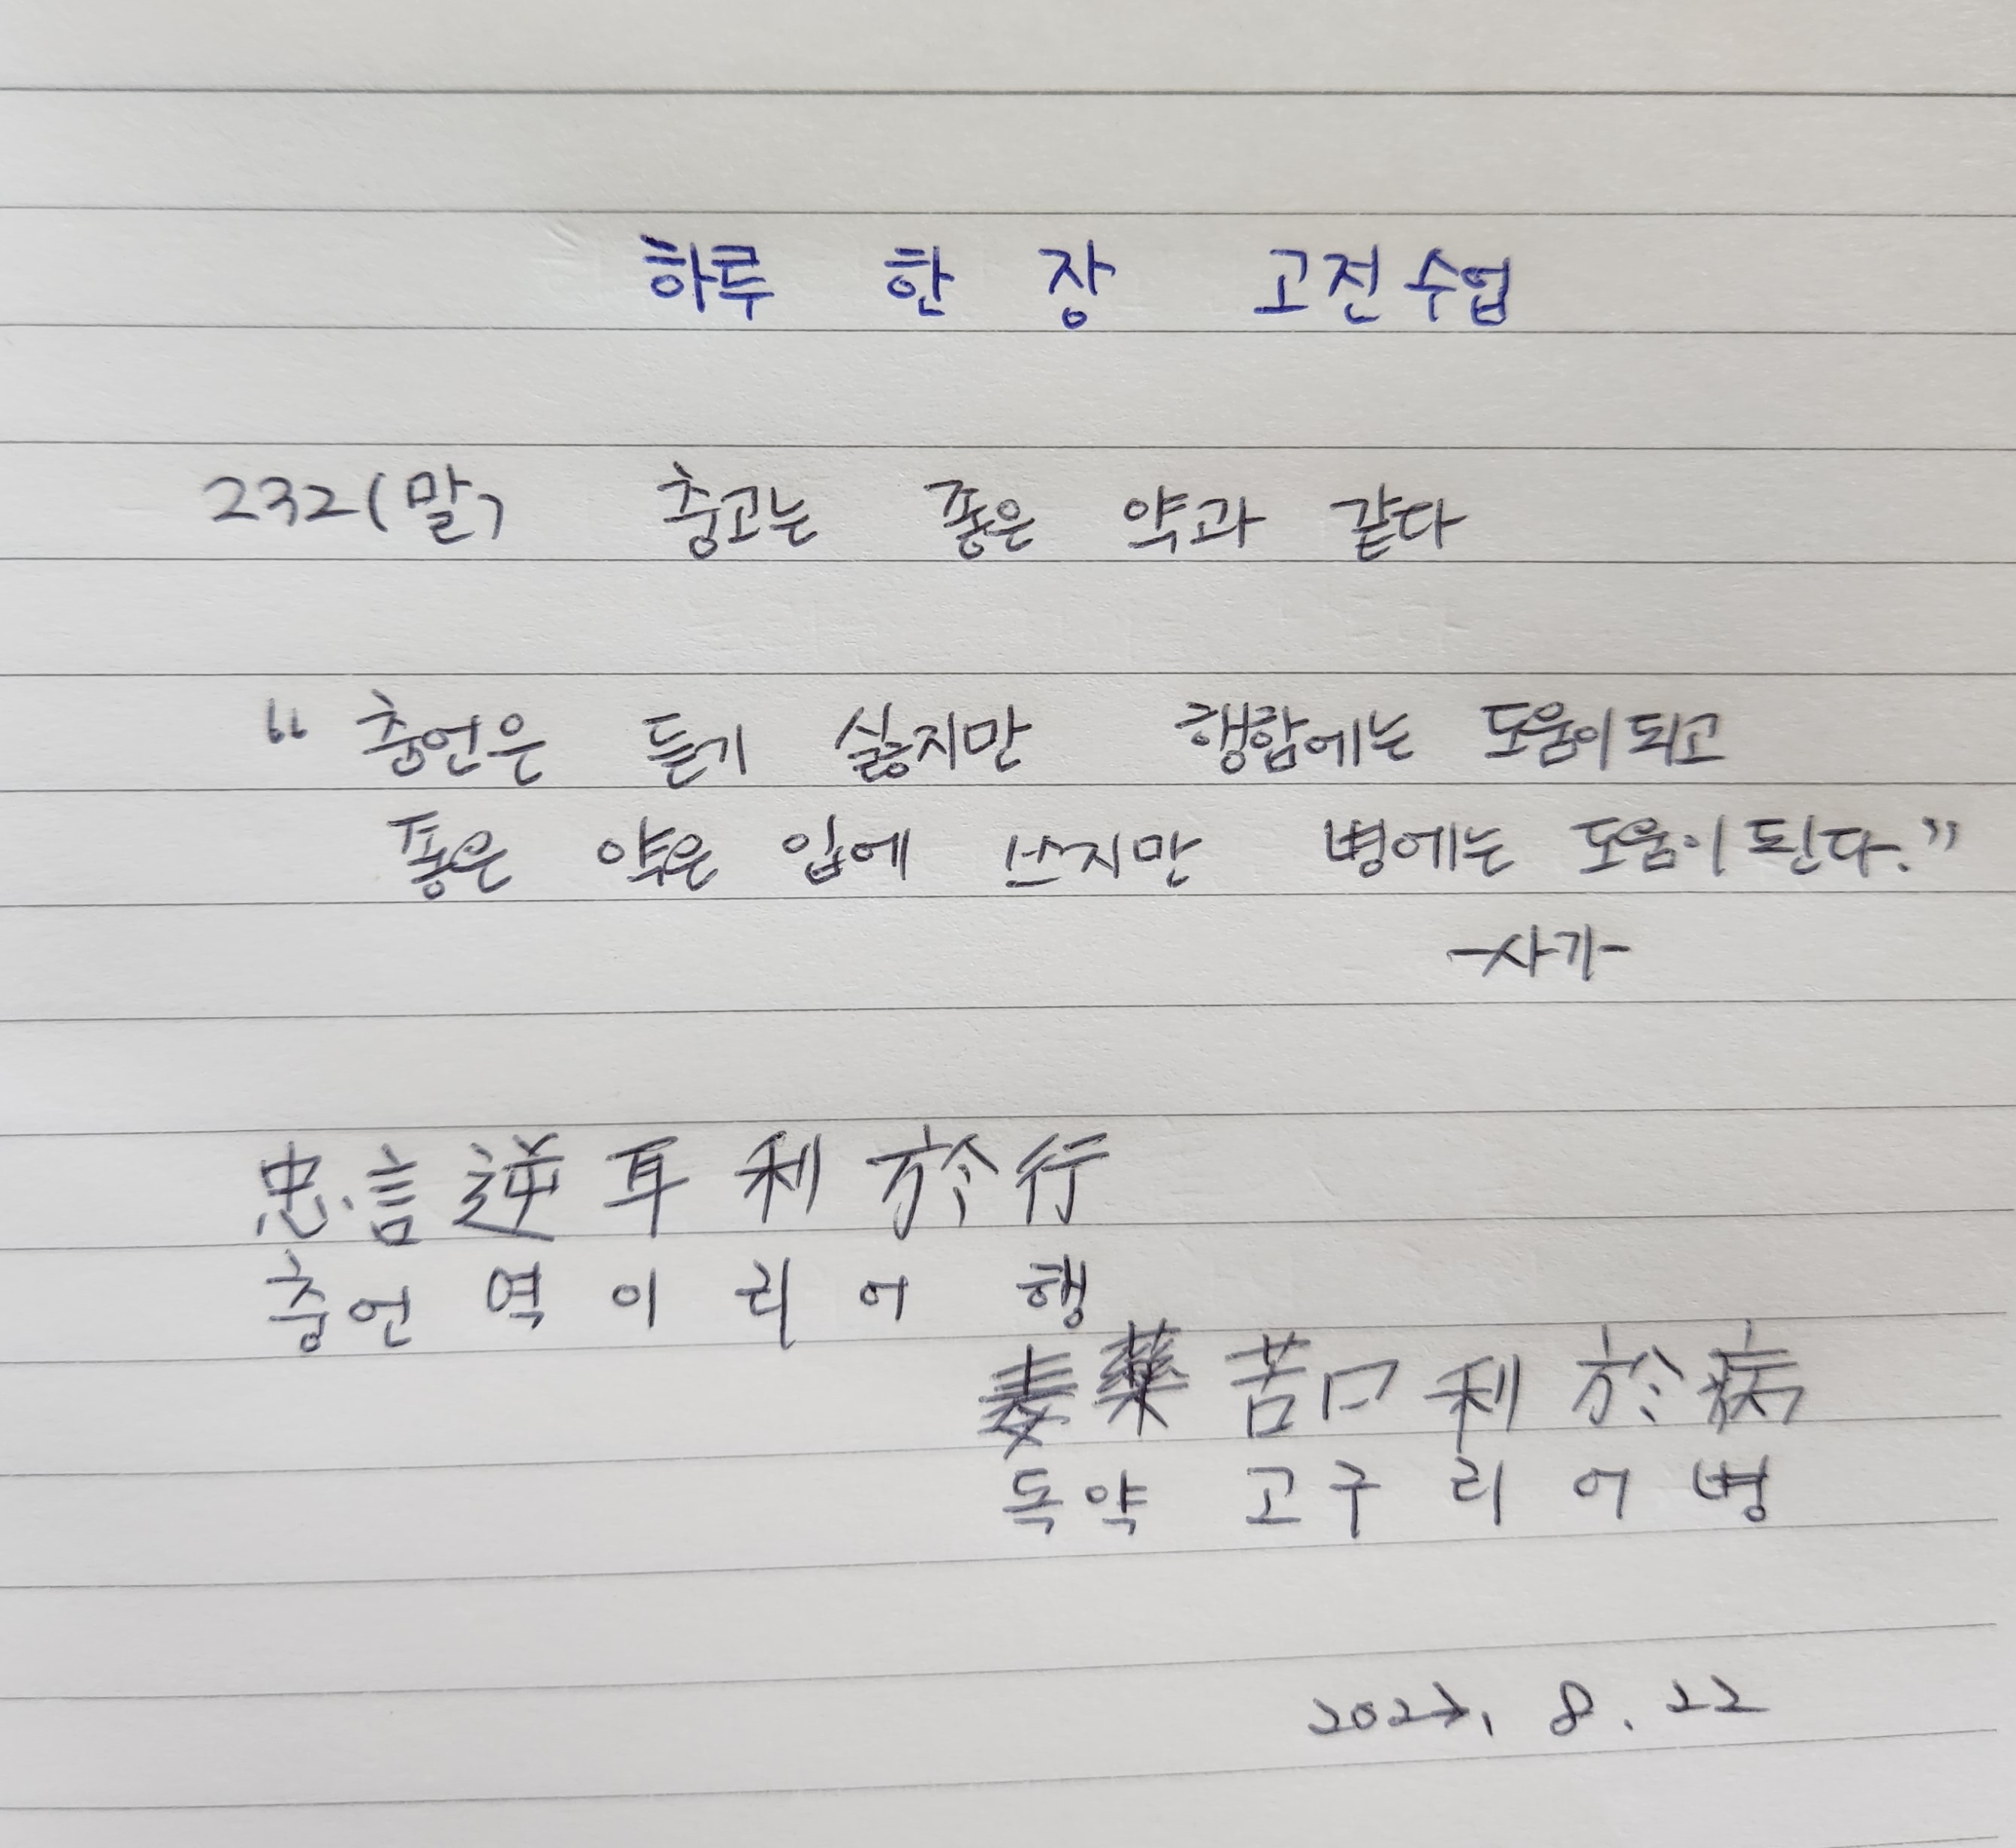 하루 한 장 고전수업
232(말) 충고는 좋은 약과 같다
“충언은 듣기 싫지만 행함에는 도움이 되고
좋은 약은 입에 쓰지만 병에는 도움이 된다.”
-사기-
忠言逆耳利於行
충언역이리어행
毒藥苦口利於病
독약고구리어병
8.22